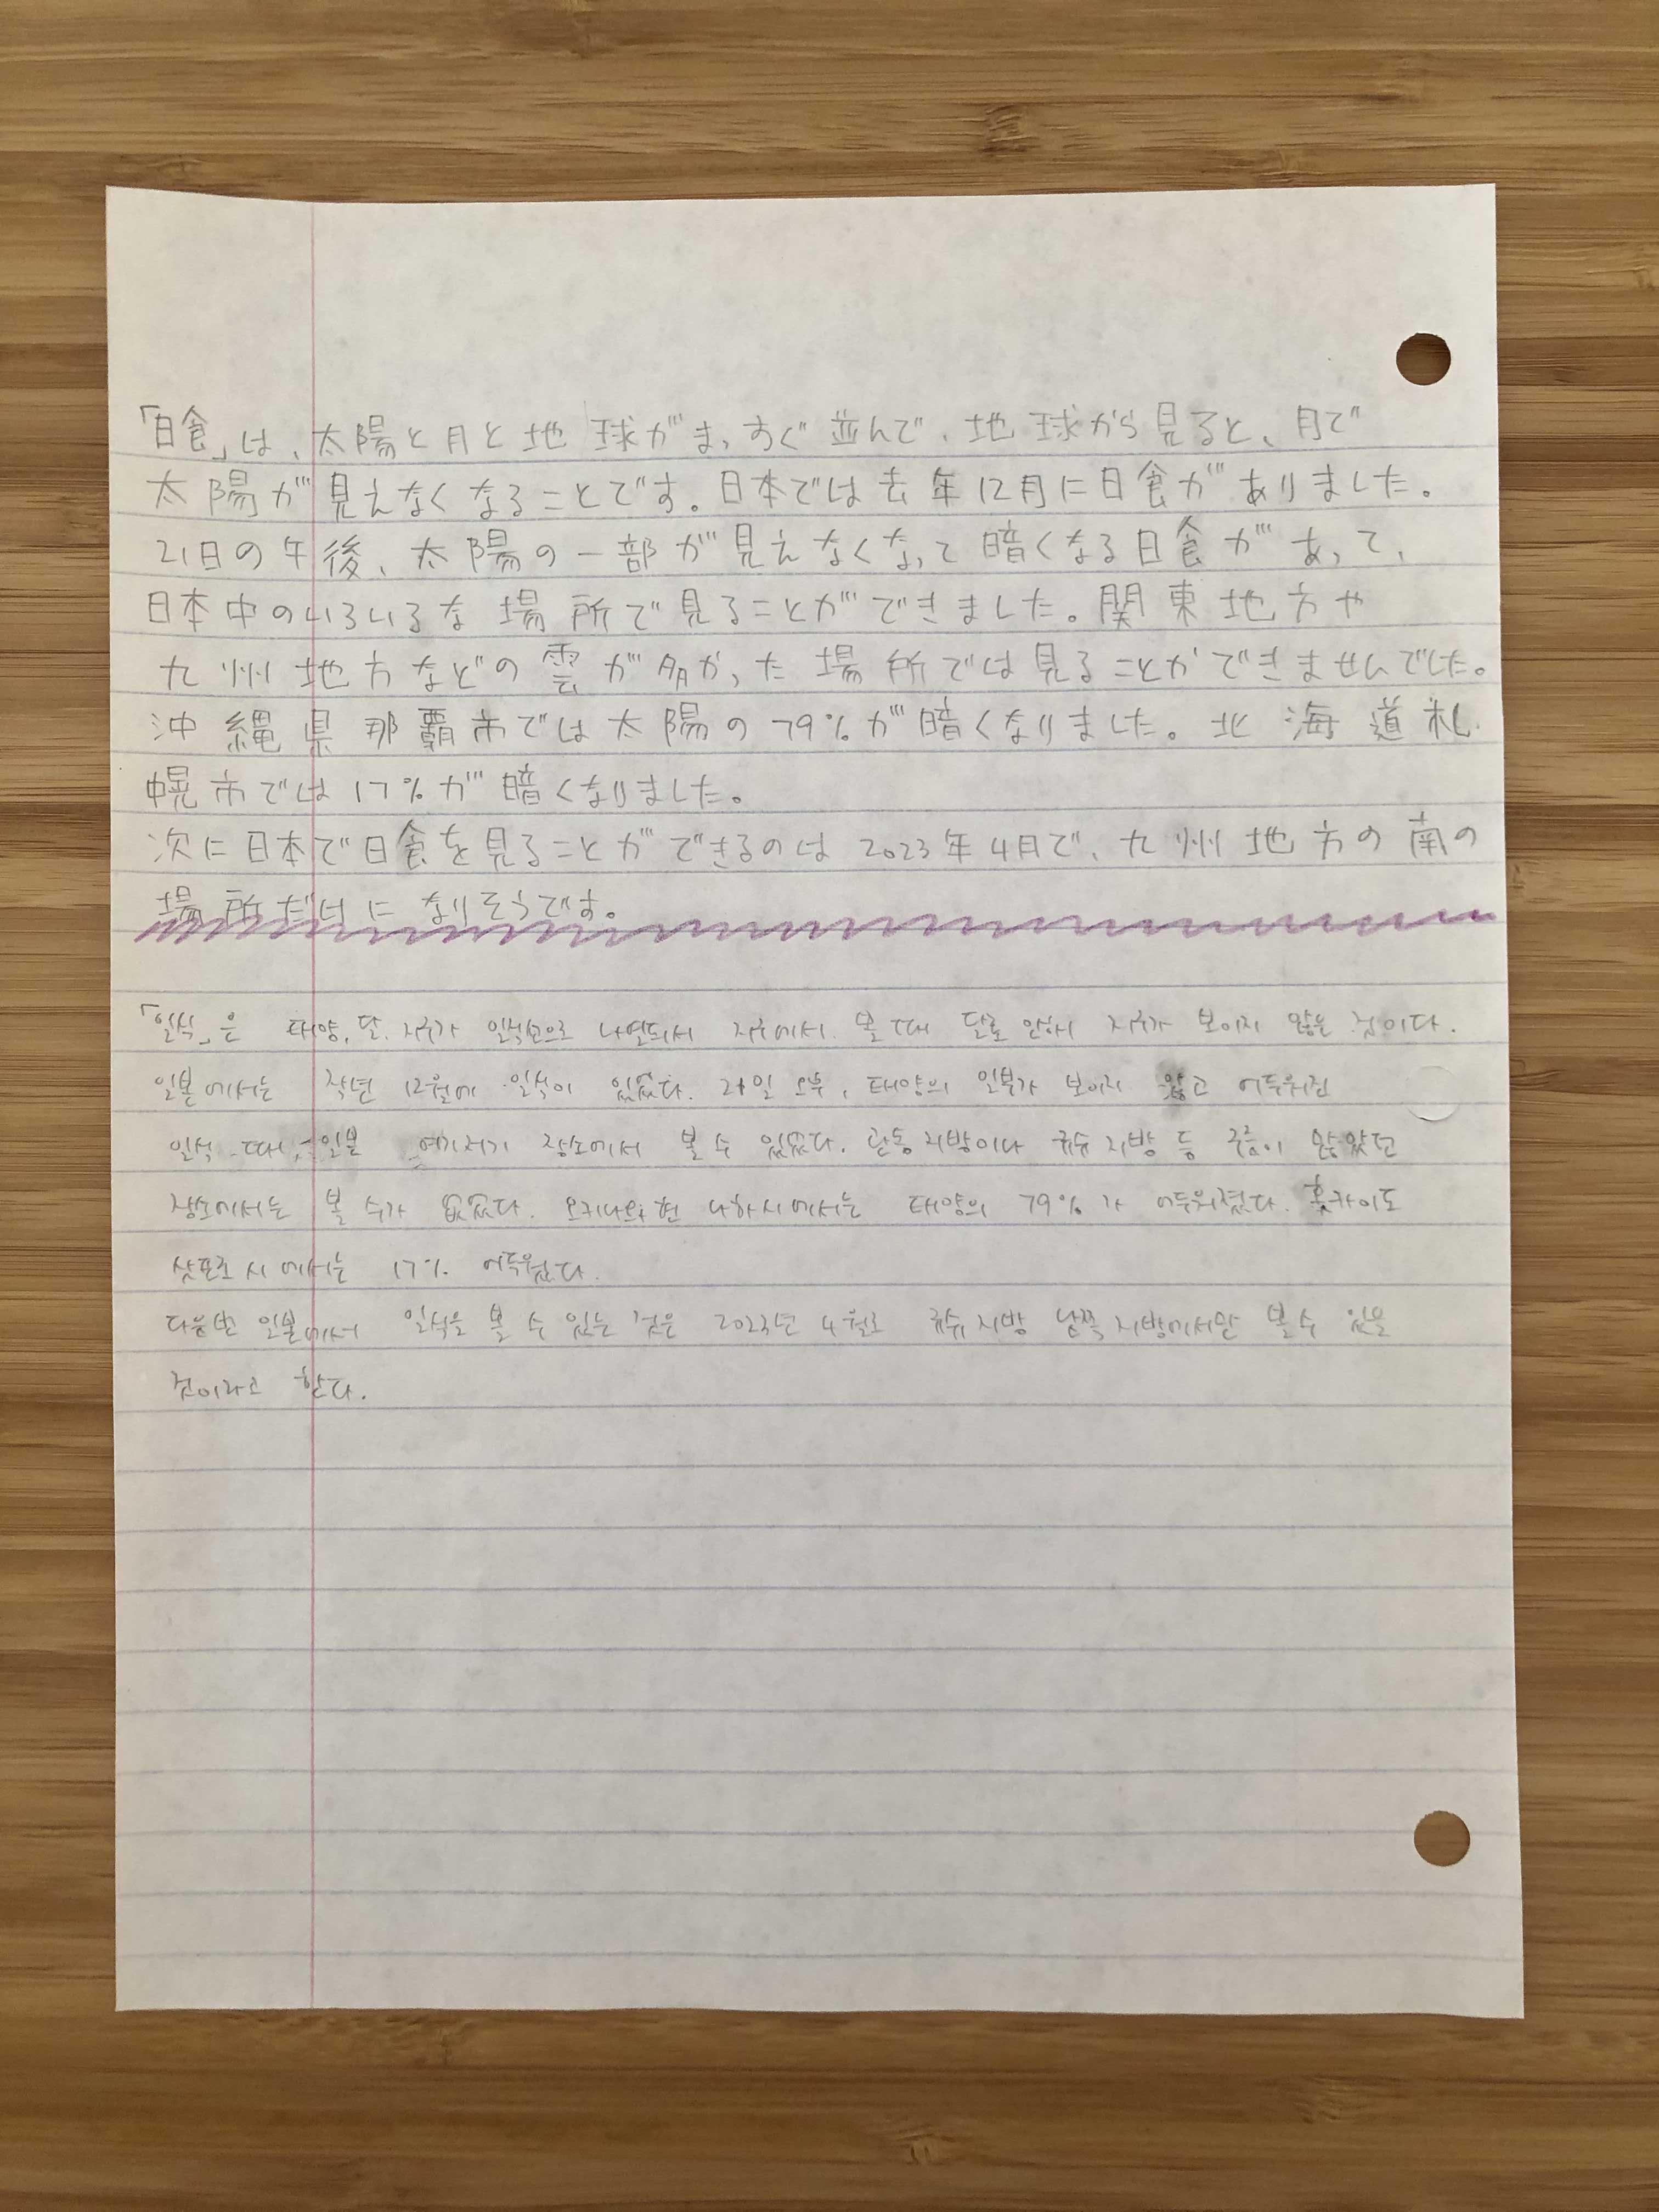 「日食」は、太陽と月と地球がまっすぐ並んで、地球から見ると、月で
太陽が見えなくなることです。日本では去年12月に日食がありました。
21日の午後、太陽の一部が見えなくなって暗くなる日食があって、
日本中のいろいろな場所で見ることができました。関東地方や
九州地方などの雲が多かった場所では見ることができませんでした。
沖縄県那覇市では太陽の79%が暗くなりました。北海道札
幌市では17%が暗くなりました。
次に日本で日食を見ることができるのは2023年4月で、九州地方の南の
場所だけになりそうです。
「일식」은 태양, 달, 지구가 일직선으로 나열되서 지구에서 볼 때 달로 인해서 지구가 보이지 않은 것이다.
일본에서는 작년 12월에 일식이 있었다. 21일 오후, 태양의 일부가 보이지 않고 어두워진
일식 때 일본 여기저기 장소에서 볼 수 있었다. 관동지방이나 큐슈지방 등 구름이 많았던
장소에서는 볼 수가 없었다. 오키나와현 나하시에서는 태양의 79%가 어두워졌다. 홋카이도
삿포로시에서는 17% 어두웠다.
다음번 일본에서 일식을 볼 수 있는 것은 2023년 4월로 큐슈지방 남쪽 지방에서만 볼 수 있을
것이라고 한다.